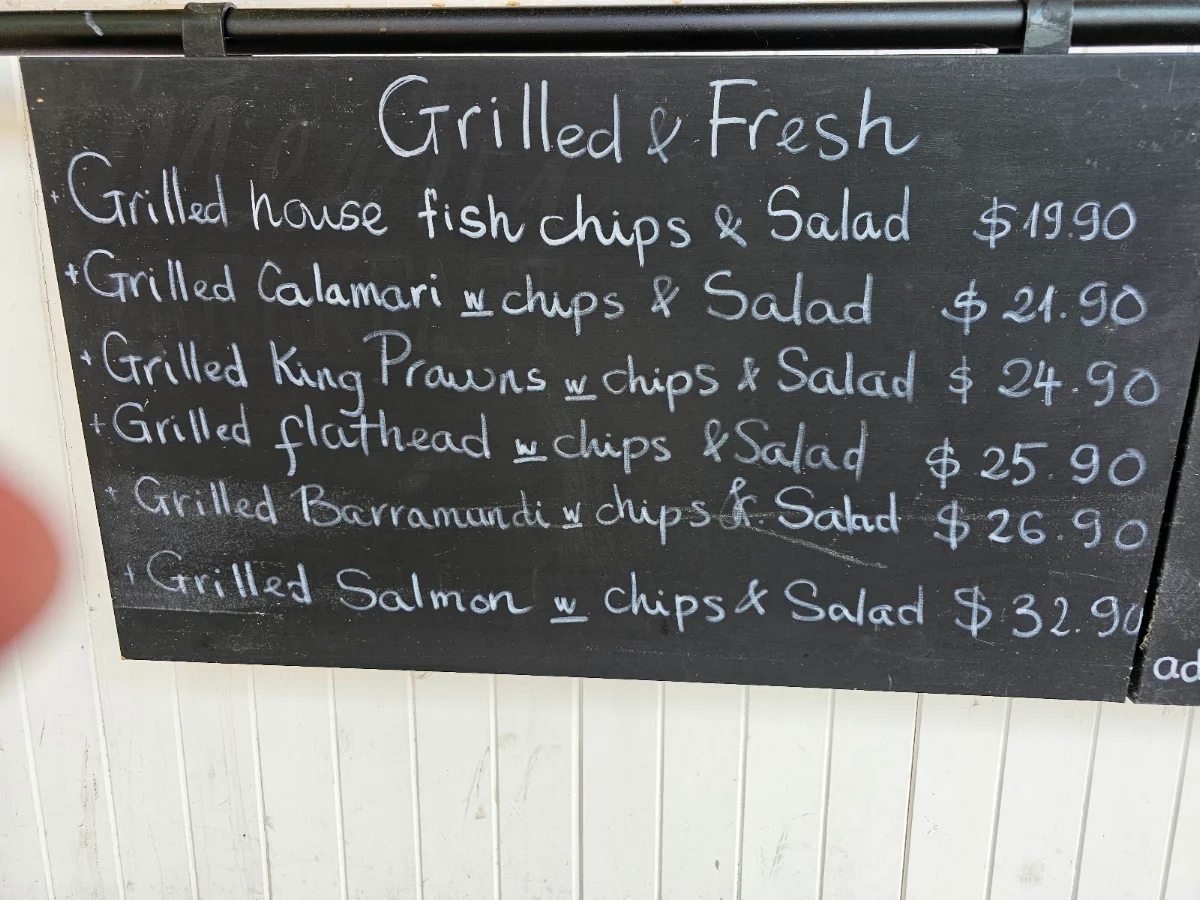 Grilled & Fresh
+ Grilled house fish chips & Salad $19.90
+ Grilled Calamari w chips & Salad $21.90
+ Grilled King Prawns w chips & Salad $24.90
+ Grilled flathead w chips & Salad $25.90
+ Grilled Barramundi w chips & Salad $26.90
+ Grilled Salmon w chips & Salad $32.90
ad